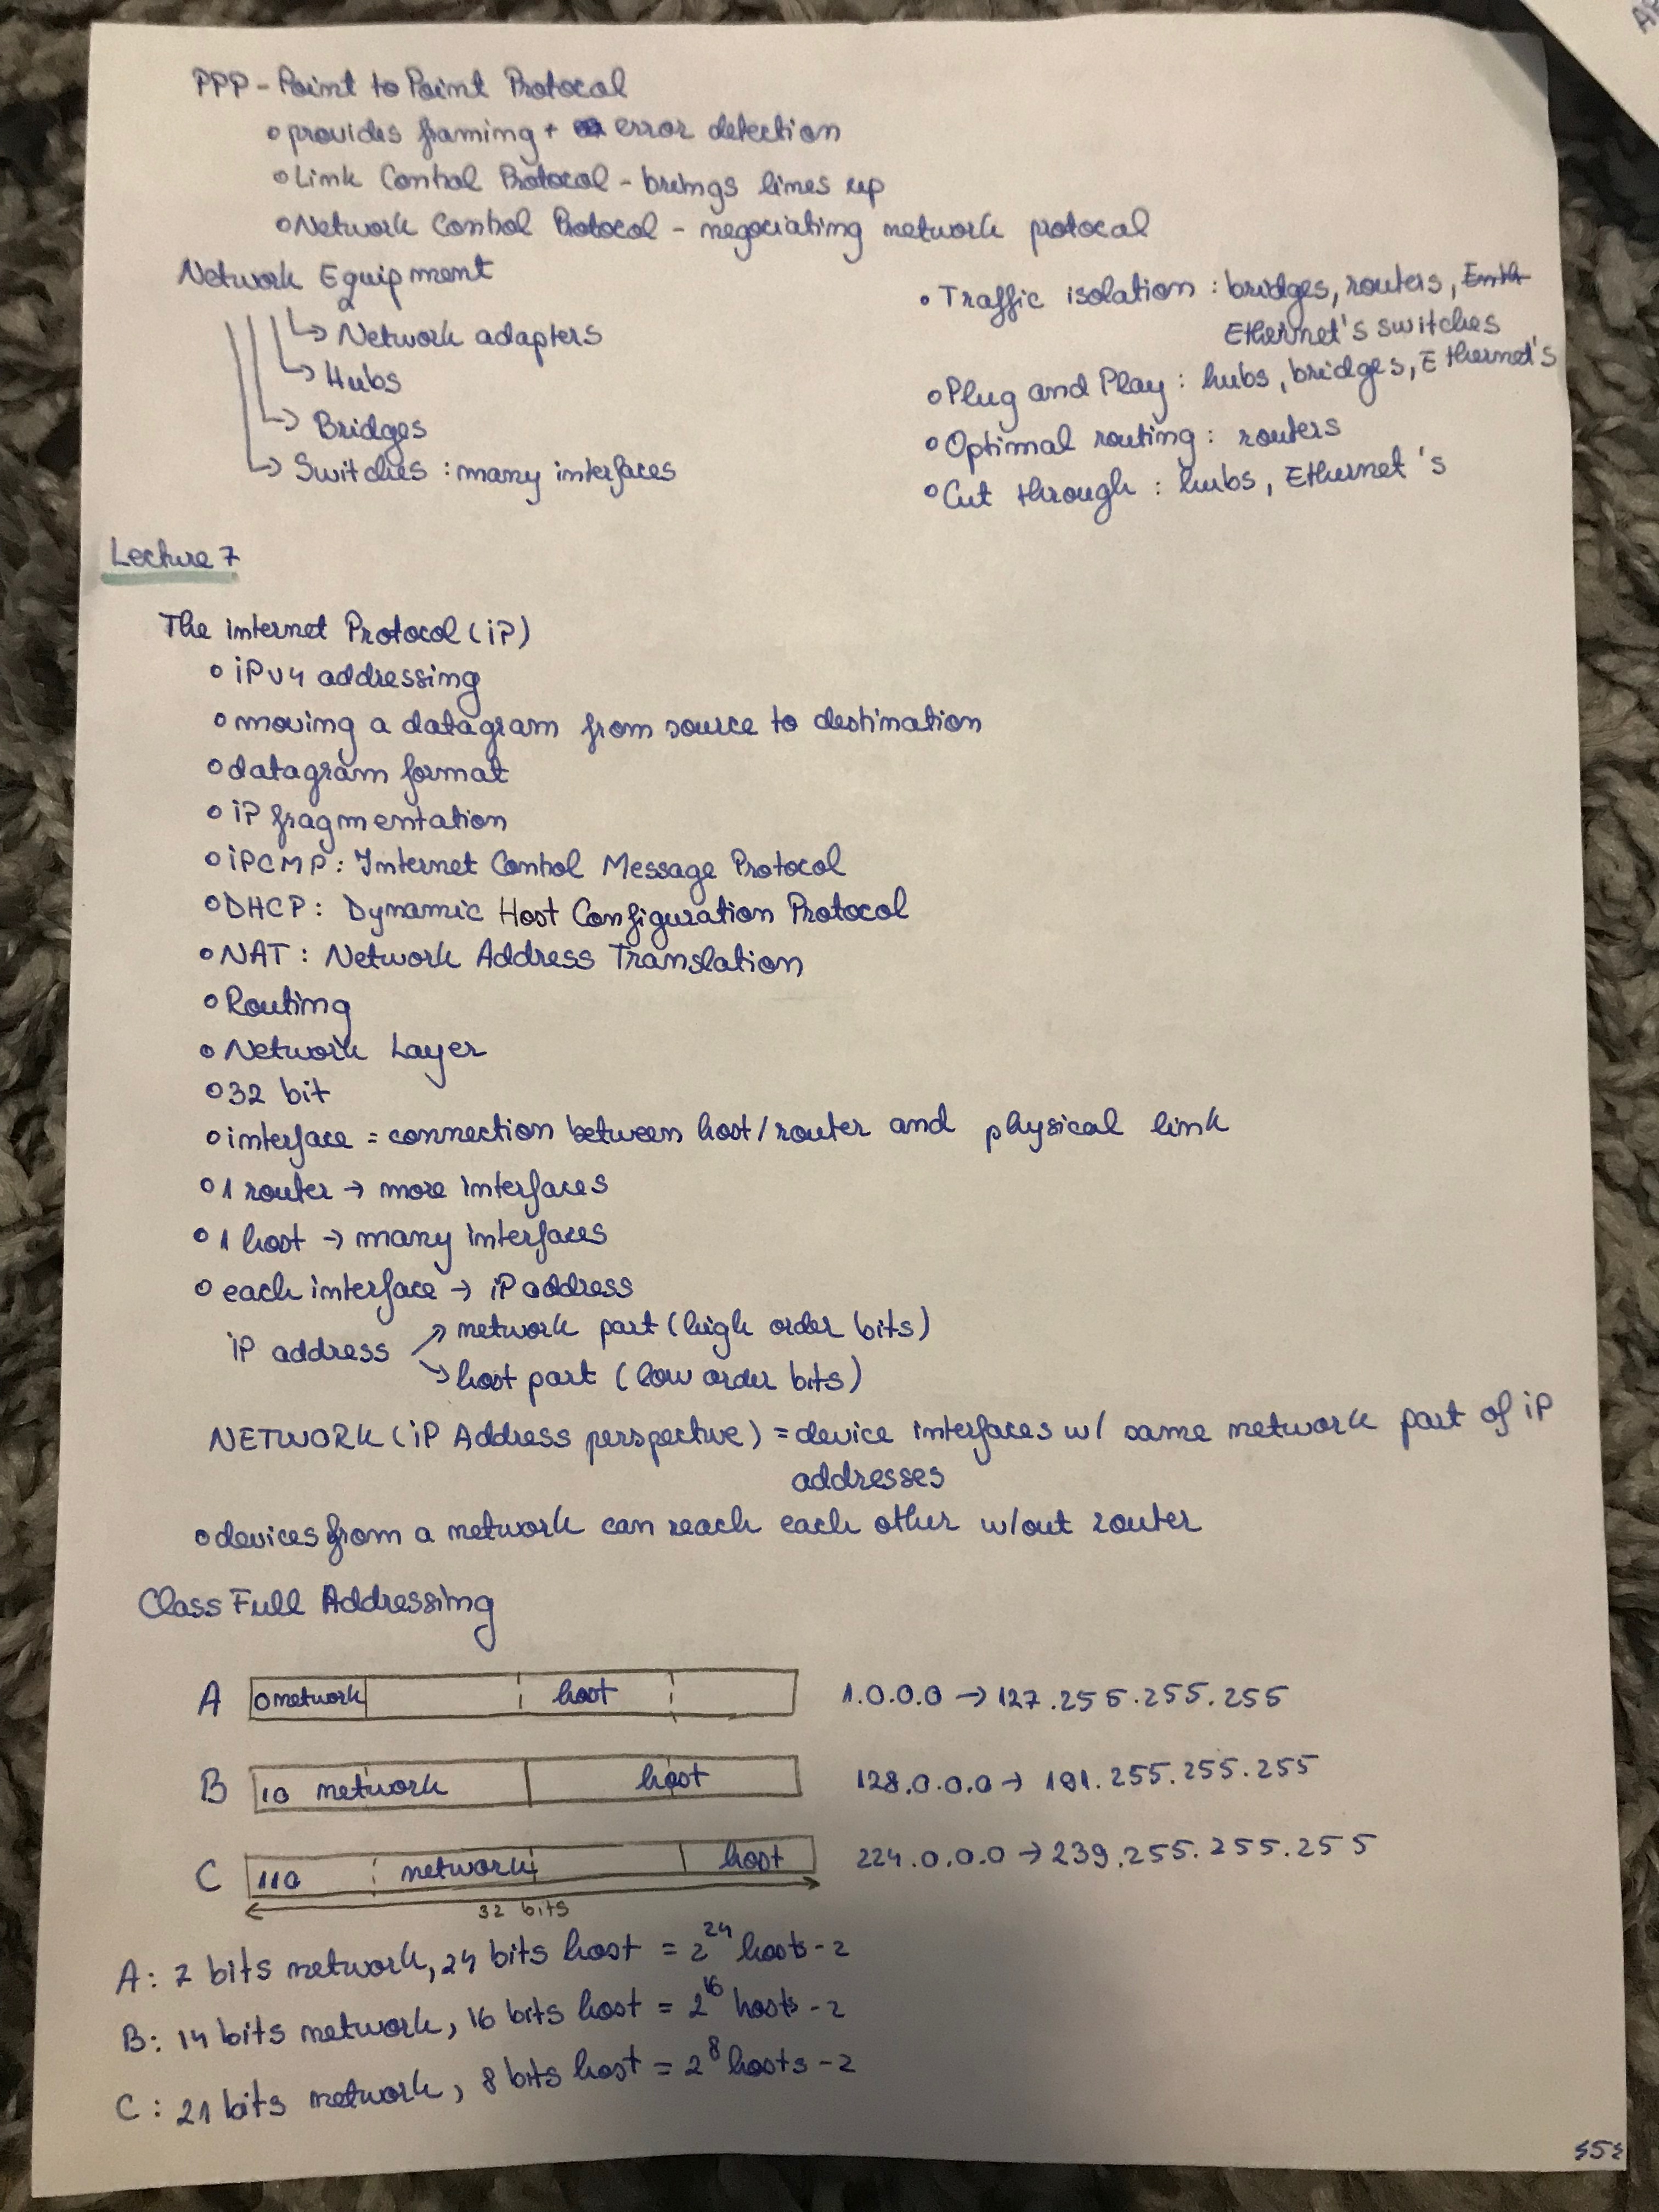 PPP - Point to Point Protocol
provides framing + error detection
Link Control Protocol - brings lines up
Network Control Protocol - negociating network protocol
Network Equipment
Network adapters
Hubs
Bridges
Switches : many interfaces
Traffic isolation : bridges, routers,
Ethernet's switches
Plug and Play : hubs, bridges, Ethernet's
Optimal routing : routers
Cut through : hubs, Ethernet's
Lecture 7
The internet Protocol (iP)
iPv4 addressing
moving a datagram from source to destination
datagram format
iP fragmentation
iPCMP : Internet Control Message Protocol
DHCP : Dynamic Host Configuration Protocol
NAT : Network Address Translation
Routing
Network Layer
32 bit
interface = connection between host/router and physical link
1 router → more interfaces
1 host → many interfaces
each interface → iP address
iP address
↗ network part (high order bits)
↘ host part (low order bits)
NETWORK (iP Address perspective) = device interfaces w/ same network part of iP
addresses
devices from a network can reach each other w/out router
Class Full Addressing
A 0 network host 1.0.0.0 → 127.255.255.255
B 10 network host 128.0.0.0 → 191.255.255.255
C 110 network host 224.0.0.0 → 239.255.255.255
32 bits
A: 7 bits network, 24 bits host = 2^24 hosts - 2
B: 14 bits network, 16 bits host = 2^16 hosts - 2
C: 21 bits network, 8 bits host = 2^8 hosts - 2